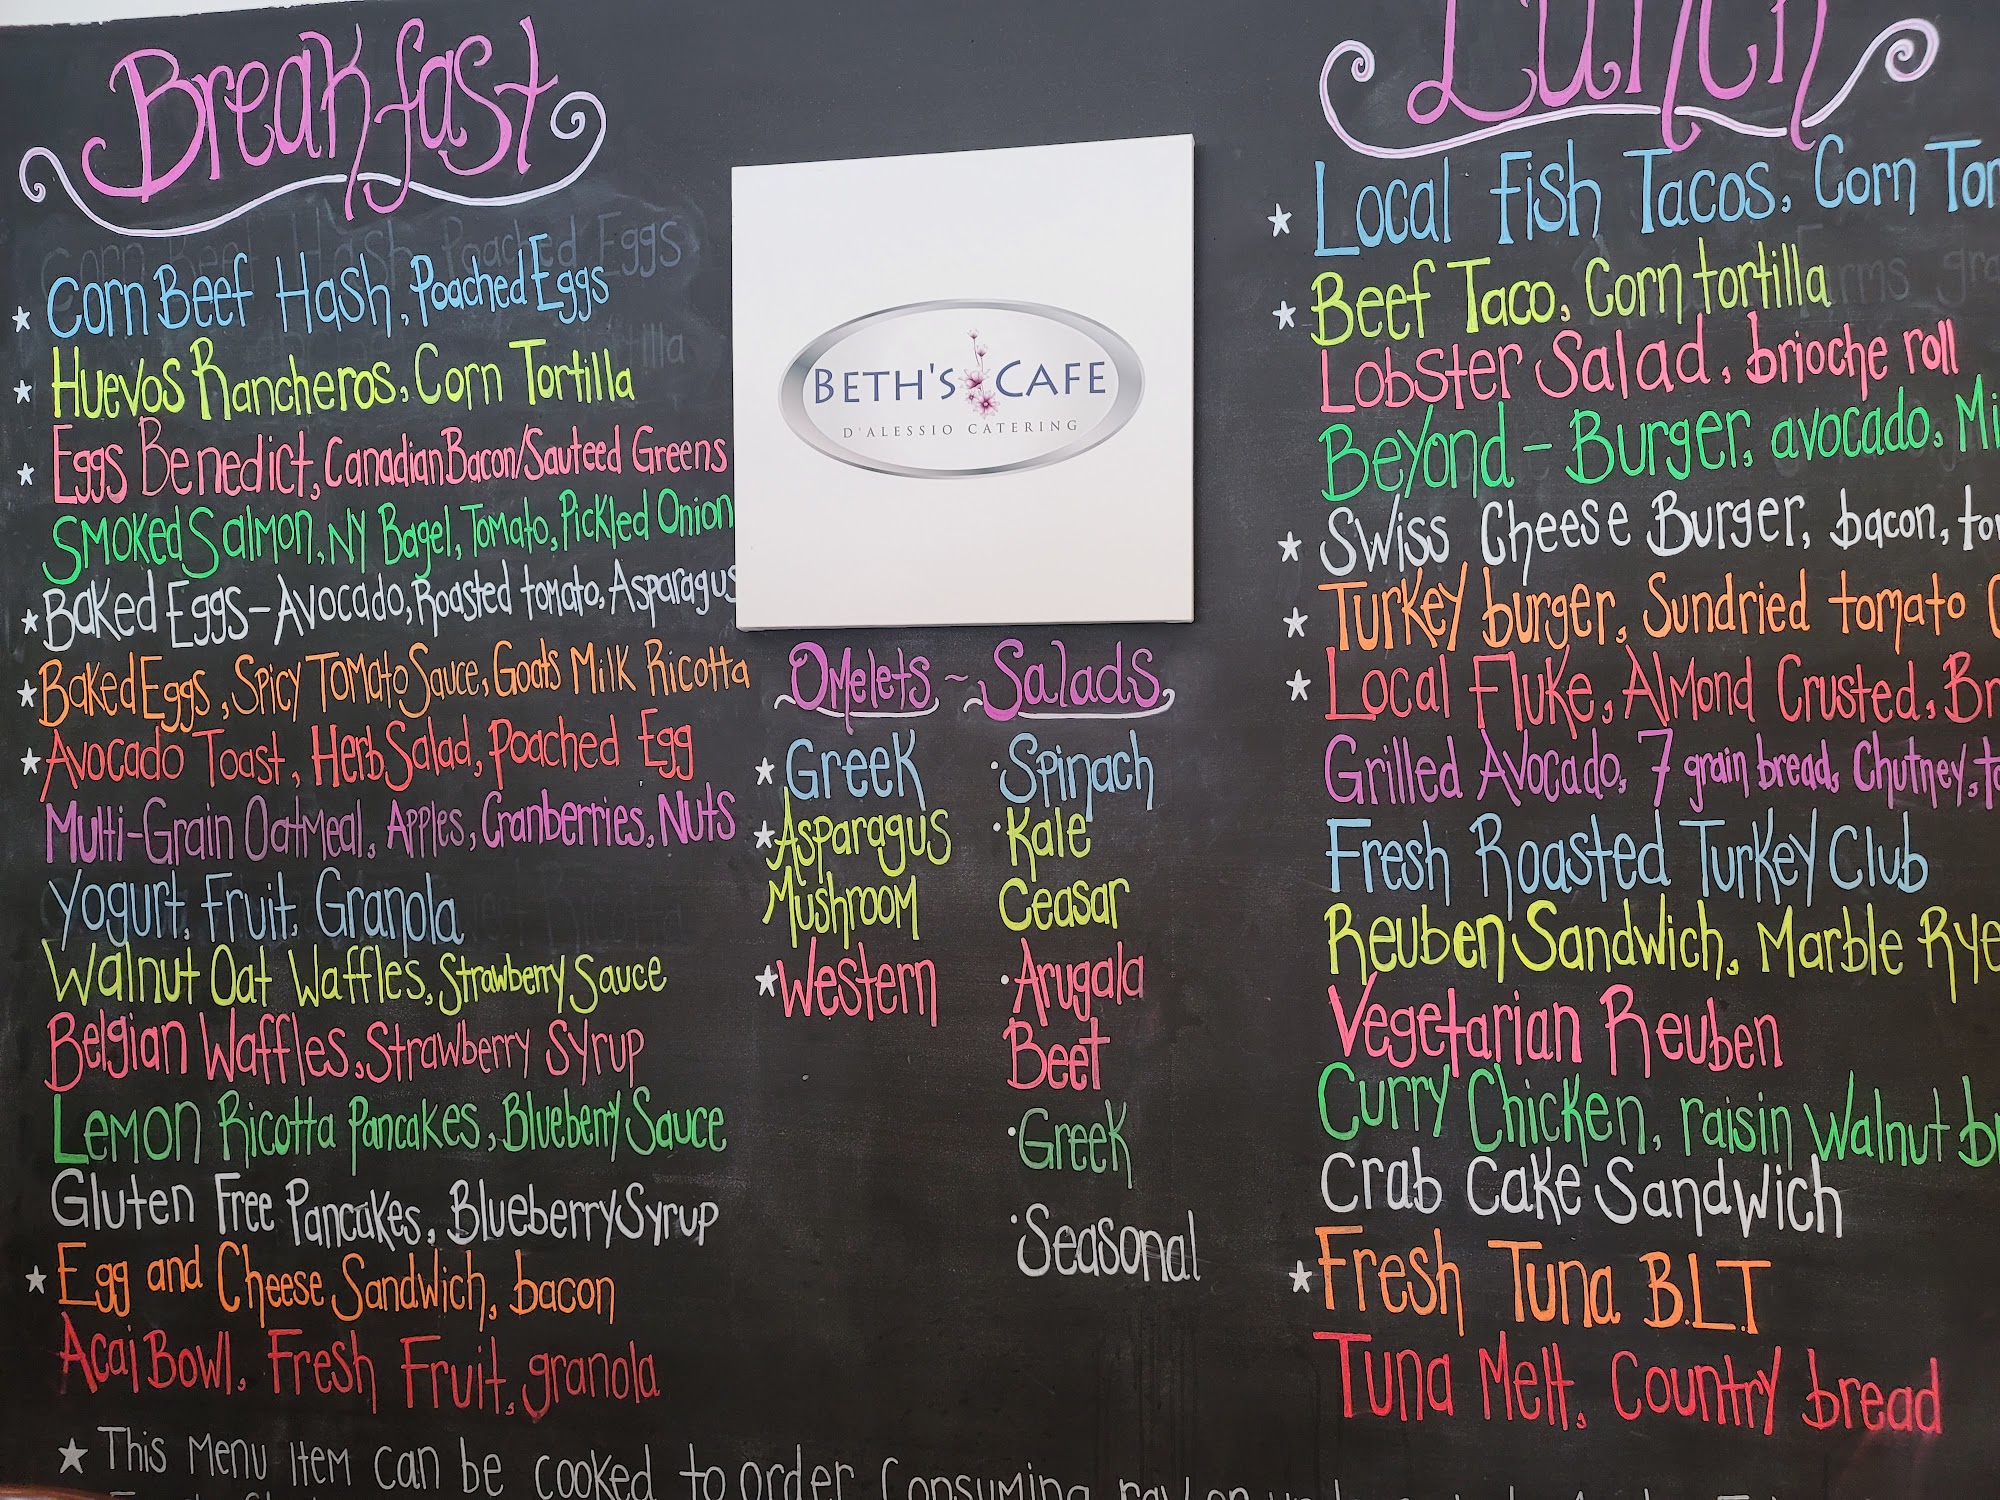 Breakfast
★ Corn Beef Hash, Poached Eggs
★ Huevos Rancheros, Corn Tortilla
★ Eggs Benedict, Canadian Bacon/Sauteed Greens
Smoked Salmon, NY Bagel, Tomato, Pickled Onion
★ Baked Eggs - Avocado, Roasted tomato, Asparagus
★ Baked Eggs, Spicy Tomato Sauce, Goats Milk Ricotta
★ Avocado Toast, Herb Salad, Poached Egg
Multi-Grain Oatmeal, Apples, Cranberries, Nuts
Yogurt, Fruit, Granola
Walnut Oat Waffles, Strawberry Sauce
Belgian Waffles, Strawberry Syrup
Lemon Ricotta Pancakes, Blueberry Sauce
Gluten Free Pancakes, Blueberry Syrup
★ Egg and Cheese Sandwich, bacon
Acai Bowl, Fresh Fruit, granola
★ This Menu Item can be cooked to order Consuming
BETH'S CAFE
D'ALESSIO CATERING
Omelets ~ Salads
★ Greek
★ Asparagus
Mushroom
★ Western
· Spinach
· Kale
Ceasar
· Arugala
Beet
· Greek
· Seasonal
Lunch
★ Local Fish Tacos, Corn Tor
★ Beef Taco, Corn tortilla
Lobster Salad, brioche roll
Beyond - Burger, avocado, Mi
★ Swiss Cheese Burger, bacon, to
★ Turkey burger, Sundried tomato
★ Local Fluke, Almond Crusted, Br
Grilled Avocado, 7 grain bread, Chutney, to
Fresh Roasted Turkey Club
Reuben Sandwich, Marble Rye
Vegetarian Reuben
Curry Chicken, raisin Walnut br
Crab Cake Sandwich
★ Fresh Tuna B.L.T
Tuna Melt, Country bread